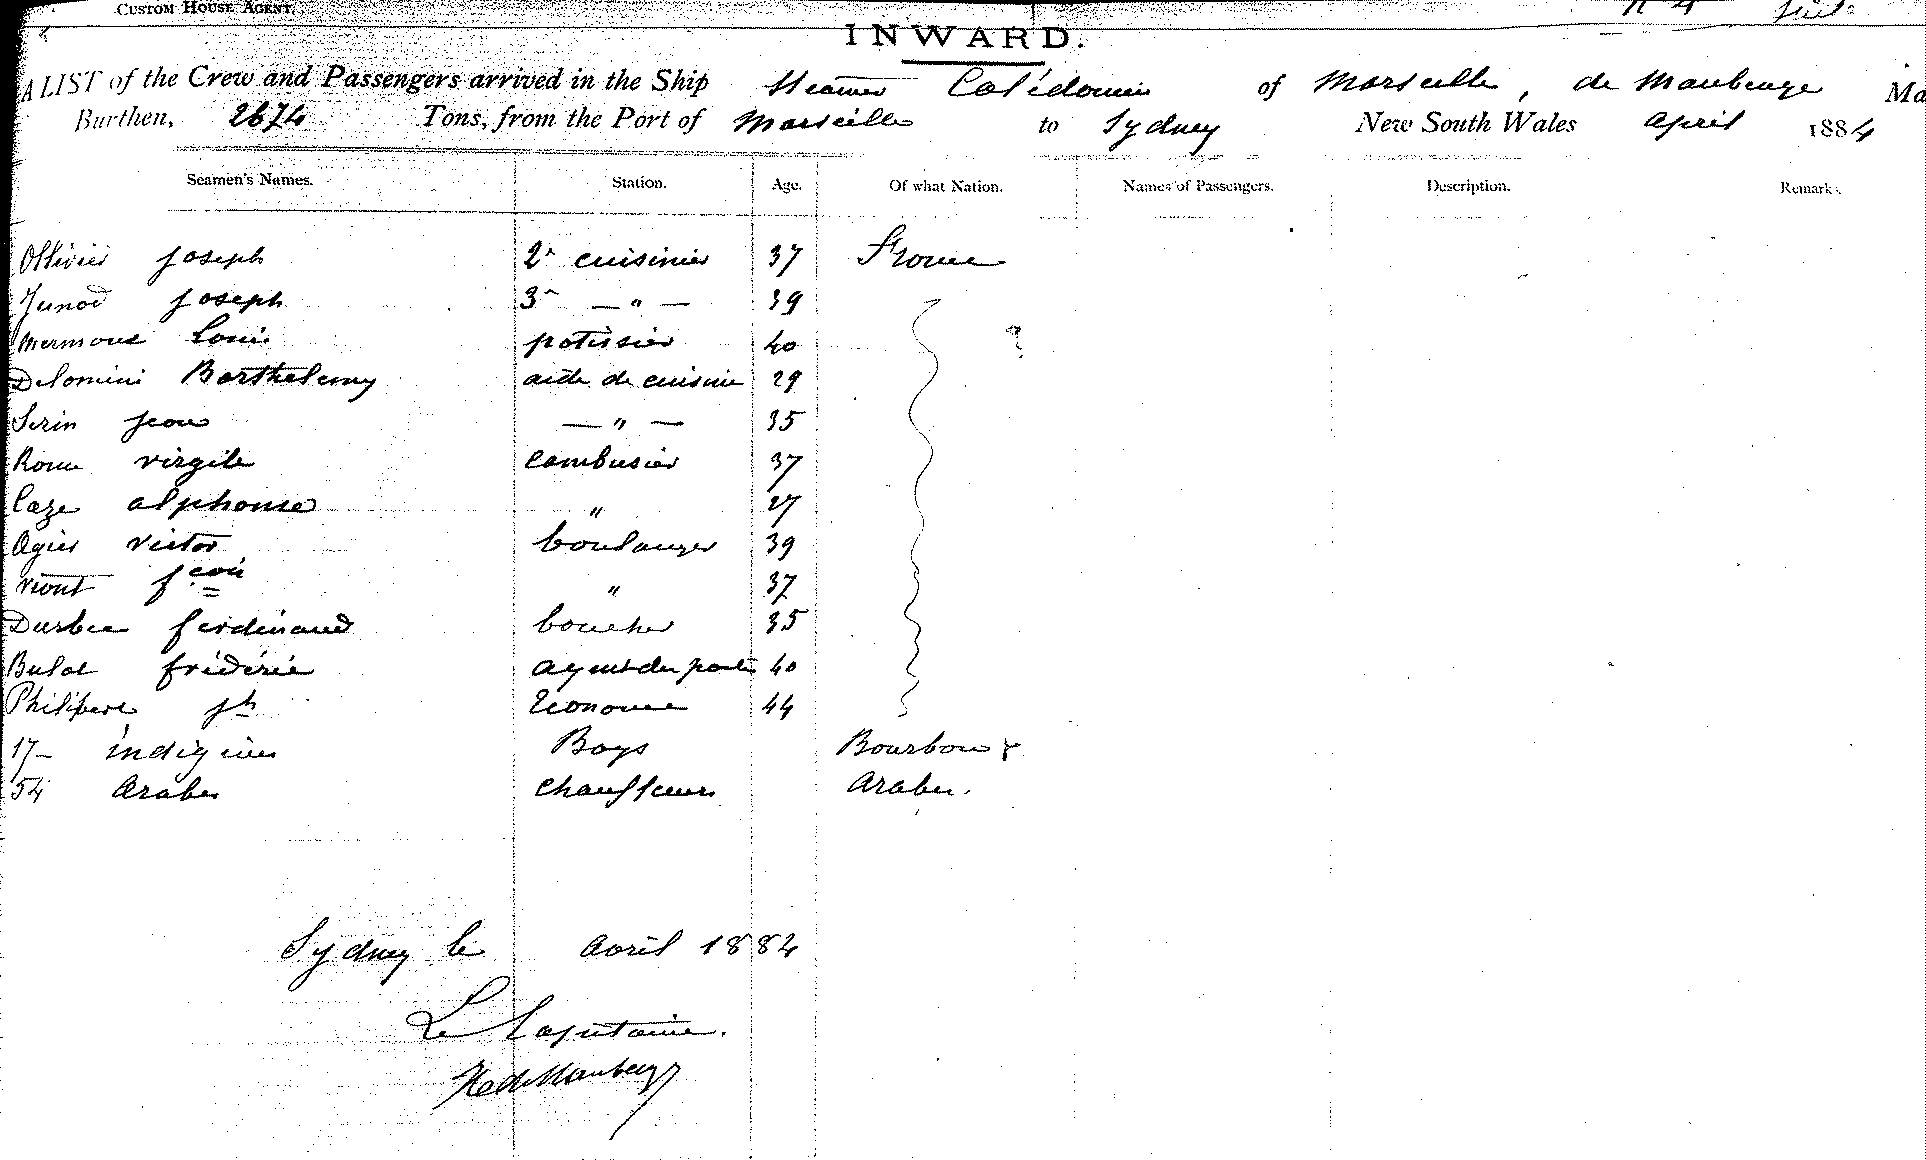 CUSTOM HOUSE AGENT.
INWARD.
A LIST of the Crew and Passengers arrived in the Ship Steamer Calédonien of Marseille, de Maubeuge Ma
Burthen, 2674 Tons, from the Port of Marseille to Sydney New South Wales April 1884
Seamen's Names. Station. Age. Of what Nation. Names of Passengers. Description. Remarks.
Ollivier Joseph 2e cuisinier 37 France
Junod Joseph 3e — " — 39
Mermoud Louis patissier 40
Delomini Barthelemy aide de cuisine 29
Serin Jean — " — 35
Roux virgile cambusier 37
Caze alphonse " 27
Agier victor boulanger 39
Viont fçois " 37
Durbec ferdinand boucher 35
Bulot frédéric agent des postes 40
Philipert Jh Econome 44
17 - indigènes Boys Bourbon
54 Arabes chauffeurs Arabes.
Sydney le avril 1884
Le Capitaine.
H de Maubeuge